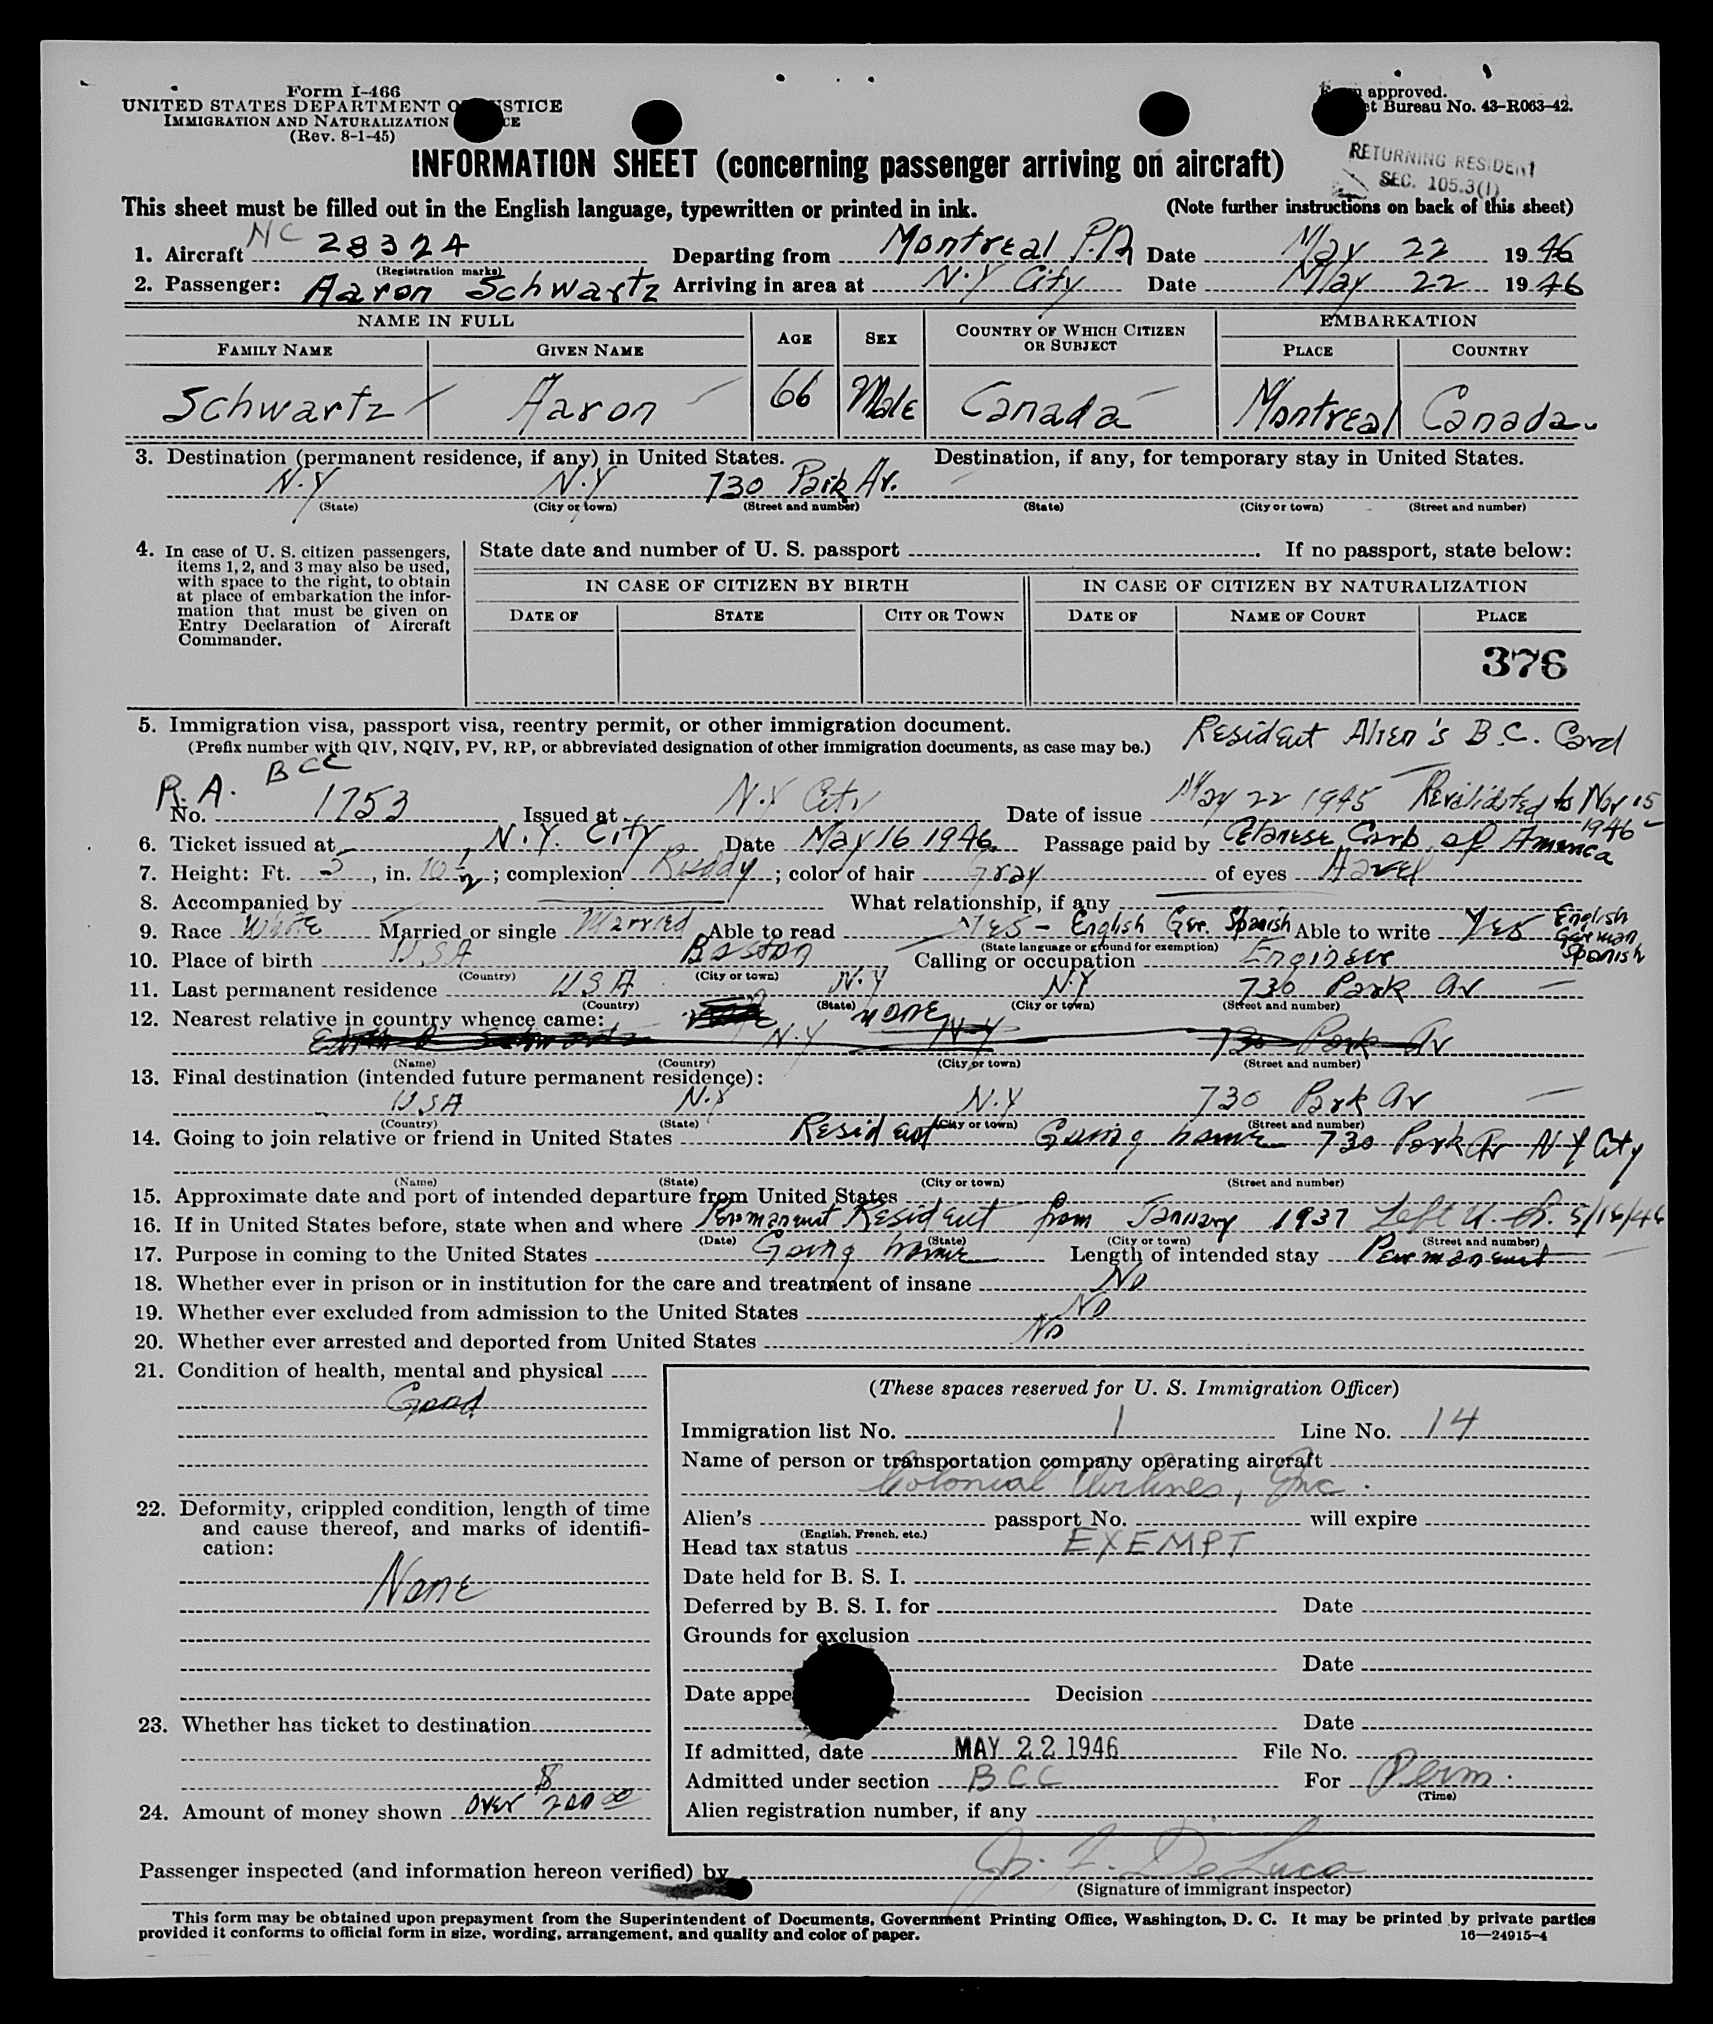 Form I-466
UNITED STATES DEPARTMENT OF JUSTICE
IMMIGRATION AND NATURALIZATION
(Rev. 8-1-45)
approved.
Bureau No. 43-R063-42.
INFORMATION SHEET (concerning passenger arriving on aircraft)
RETURNING RESIDENT
SEC. 105.3(1)
This sheet must be filled out in the English language, typewritten or printed in ink. (Note further instructions on back of this sheet)
1. Aircraft NC 28324 Departing from Montreal P.Q. Date May 22 1946
(Registration marks)
2. Passenger: Aaron Schwartz Arriving in area at N.Y City Date May 22 1946
NAME IN FULL AGE SEX COUNTRY OF WHICH CITIZEN OR SUBJECT EMBARKATION
FAMILY NAME GIVEN NAME PLACE COUNTRY
Schwartz Aaron 66 Male Canada Montreal Canada
3. Destination (permanent residence, if any) in United States. Destination, if any, for temporary stay in United States.
N.Y N.Y 730 Park Av.
(State) (City or town) (Street and number) (State) (City or town) (Street and number)
4. In case of U. S. citizen passengers, items 1, 2, and 3 may also be used, with space to the right, to obtain at place of embarkation the information that must be given on Entry Declaration of Aircraft Commander.
State date and number of U. S. passport . If no passport, state below:
IN CASE OF CITIZEN BY BIRTH IN CASE OF CITIZEN BY NATURALIZATION
DATE OF STATE CITY OR TOWN DATE OF NAME OF COURT PLACE
376
5. Immigration visa, passport visa, reentry permit, or other immigration document. Resident Alien's B.C. Card
(Prefix number with QIV, NQIV, PV, RP, or abbreviated designation of other immigration documents, as case may be.)
R.A. BCC
No. 1753 Issued at N.Y City Date of issue May 22 1945 Revalidated to Nov 15 1946
6. Ticket issued at N.Y. City Date May 16 1946 Passage paid by Celanese Corp. of America
7. Height: Ft. 5, in. 10 1/2; complexion Ruddy; color of hair Gray of eyes Hazel
8. Accompanied by What relationship, if any
9. Race White Married or single Married Able to read Yes - English Ger. Spanish Able to write Yes English German Spanish
(State language or ground for exemption)
10. Place of birth USA Boston Calling or occupation Engineer
(Country) (City or town)
11. Last permanent residence USA N.Y N.Y 730 Park Av
(Country) (State) (City or town) (Street and number)
12. Nearest relative in country whence came: none
N.Y N.Y 730 Park Av
(Name) (Country) (City or town) (Street and number)
13. Final destination (intended future permanent residence):
USA N.Y N.Y 730 Park Av
(Country) (State) (City or town) (Street and number)
14. Going to join relative or friend in United States Resident Going home 730 Park Av N Y City
(Name) (State) (City or town) (Street and number)
15. Approximate date and port of intended departure from United States
16. If in United States before, state when and where Permanent Resident from January 1937 Left U.S. 5/16/46
(Date) (State) (City or town) (Street and number)
17. Purpose in coming to the United States Going home Length of intended stay Permanent
18. Whether ever in prison or in institution for the care and treatment of insane No
19. Whether ever excluded from admission to the United States No
20. Whether ever arrested and deported from United States No
21. Condition of health, mental and physical
Good
22. Deformity, crippled condition, length of time and cause thereof, and marks of identification:
None
23. Whether has ticket to destination
24. Amount of money shown over $ 200 00
(These spaces reserved for U. S. Immigration Officer)
Immigration list No. 1 Line No. 14
Name of person or transportation company operating aircraft
Colonial Airlines, Inc.
Alien's passport No. will expire
(English, French, etc.)
Head tax status EXEMPT
Date held for B. S. I.
Deferred by B. S. I. for Date
Grounds for exclusion
Date
Date appe Decision
Date
If admitted, date MAY 22 1946 File No.
Admitted under section BCC For Perm.
(Time)
Alien registration number, if any
Passenger inspected (and information hereon verified) by F. De Luca
(Signature of immigrant inspector)
This form may be obtained upon prepayment from the Superintendent of Documents, Government Printing Office, Washington, D. C. It may be printed by private parties
provided it conforms to official form in size, wording, arrangement, and quality and color of paper. 16—24915-4